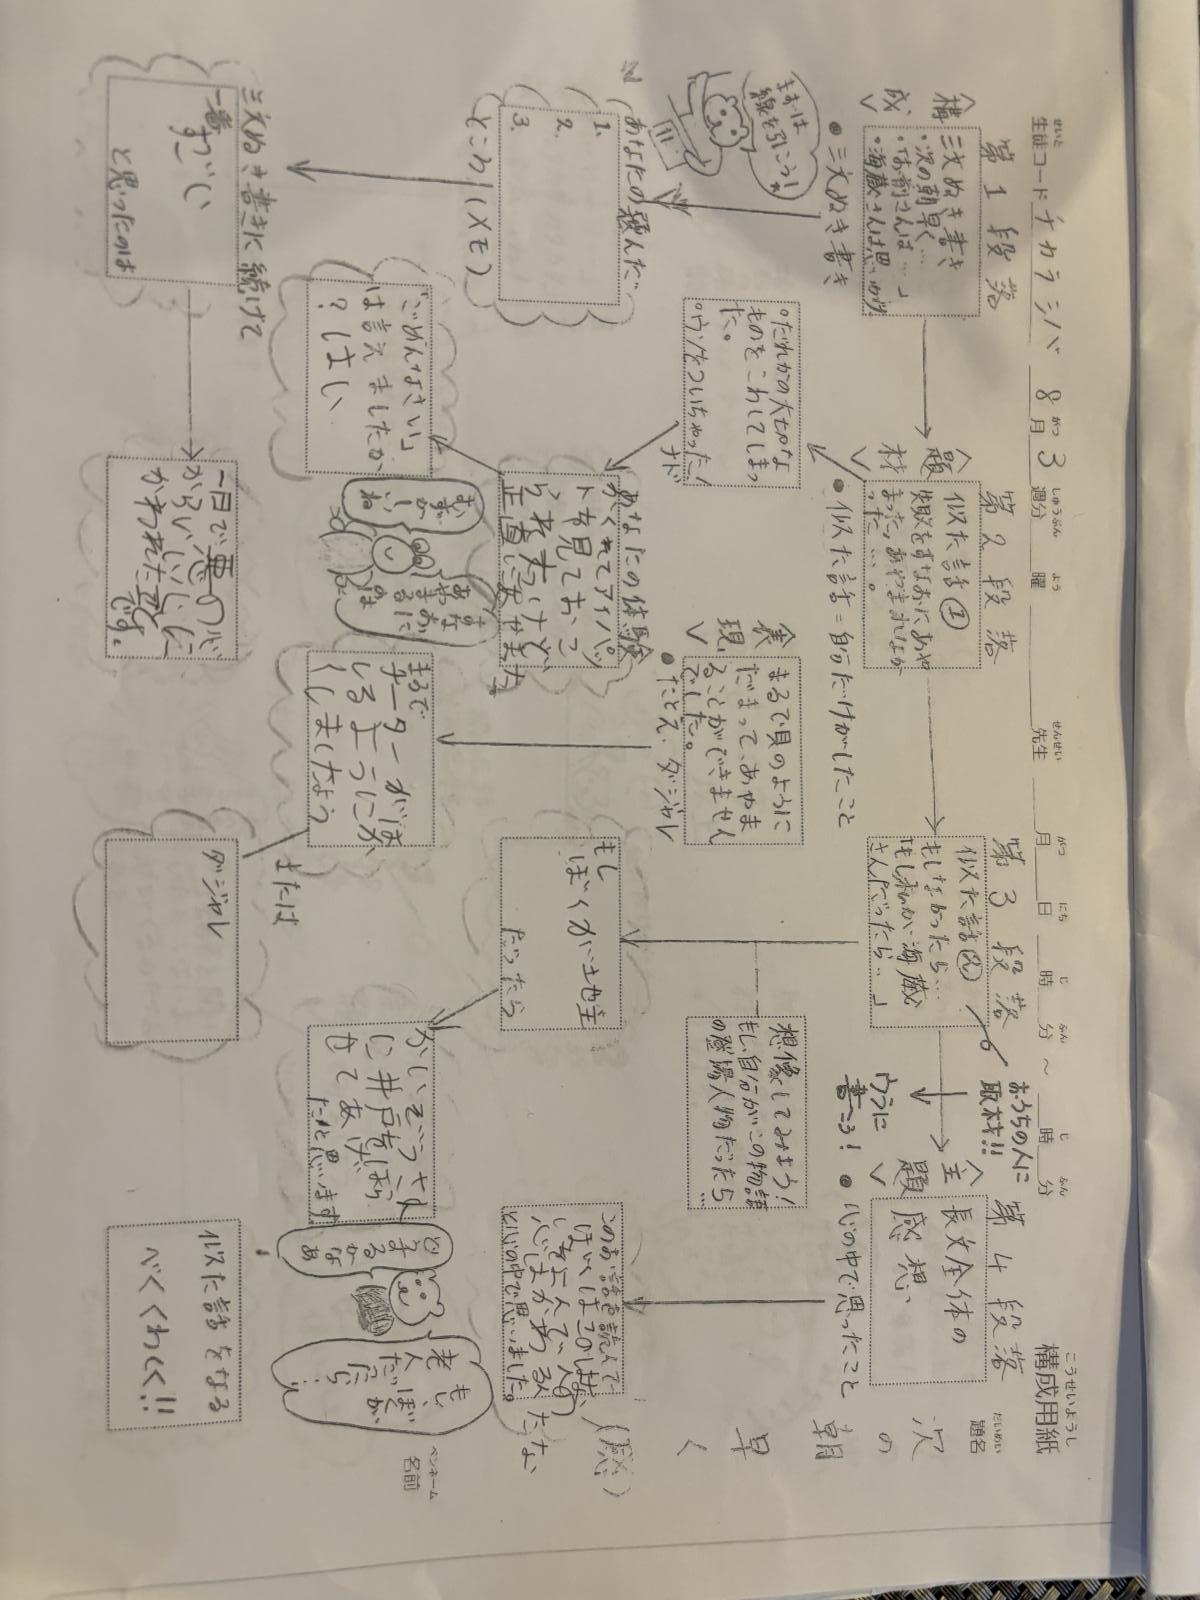 構成用紙
生徒コード チカラシバ 8月3週分 曜 先生 月 日 時 分 ～ 時 分
せいと がつ しゅうぶん よう せんせい がつ にち じ ふん じ ふん こうせいようし
題名
だいめい
次の朝早く
(感)
ペンネーム
名前
第1段落
<構成>
三文ぬき書き
・次の朝早く…
・「お前さんは…」
・海蔵さんは思いがけ
●三文ぬき書き
まずは
線を引こう!
あなたの選んだ
1.
2.
3.
ところ(メモ)
三文ぬき書きに続けて
一番すごい
と思ったのは
一日で悪の心
からいい心に
かわれた事
です。
第2段落
<題材>
似た話①
敗をすなおにあや
まった、あやまれなか
った…。
●似た話=自分だけがしたこと
・だれかの大切な
ものをこわしてしまっ
た。
・ウソをついちゃった!
ナド
あなたの体験
おくれてアイパッ
トを見ておこ
られたけど
正直に安
「ごめんなさい」
は言えましたか
?はい
すなおに
あやまる
のは
むずかしいね
<表現>
まるで貝のように
だまって、あやま
ることができません
でした。
●たとえ、ダジャレ
まるで
チーターがほ
しるようにか
くしましたよう
または
ダジャレ
第3段落
似た話②
もしなかったら…
「もし私が海蔵
さんだったら…」
おうちの人に
取材!!
想像してみよう!
もし自分がこの物語
の登場人物だったら…
もし
ぼくが地主
だったら
かいぞうさん
に井戸をほら
せてあげ
たと思います
どう
するかなあ
もしぼくが
老人だったら
第4段落
<主題>
長文全体の
感想、
●心の中で思ったこと
ウラに
書こう!
このお話を読んで、
ぼくはこの
心の中で思いました。
似た話をなる
べくくわしく!!